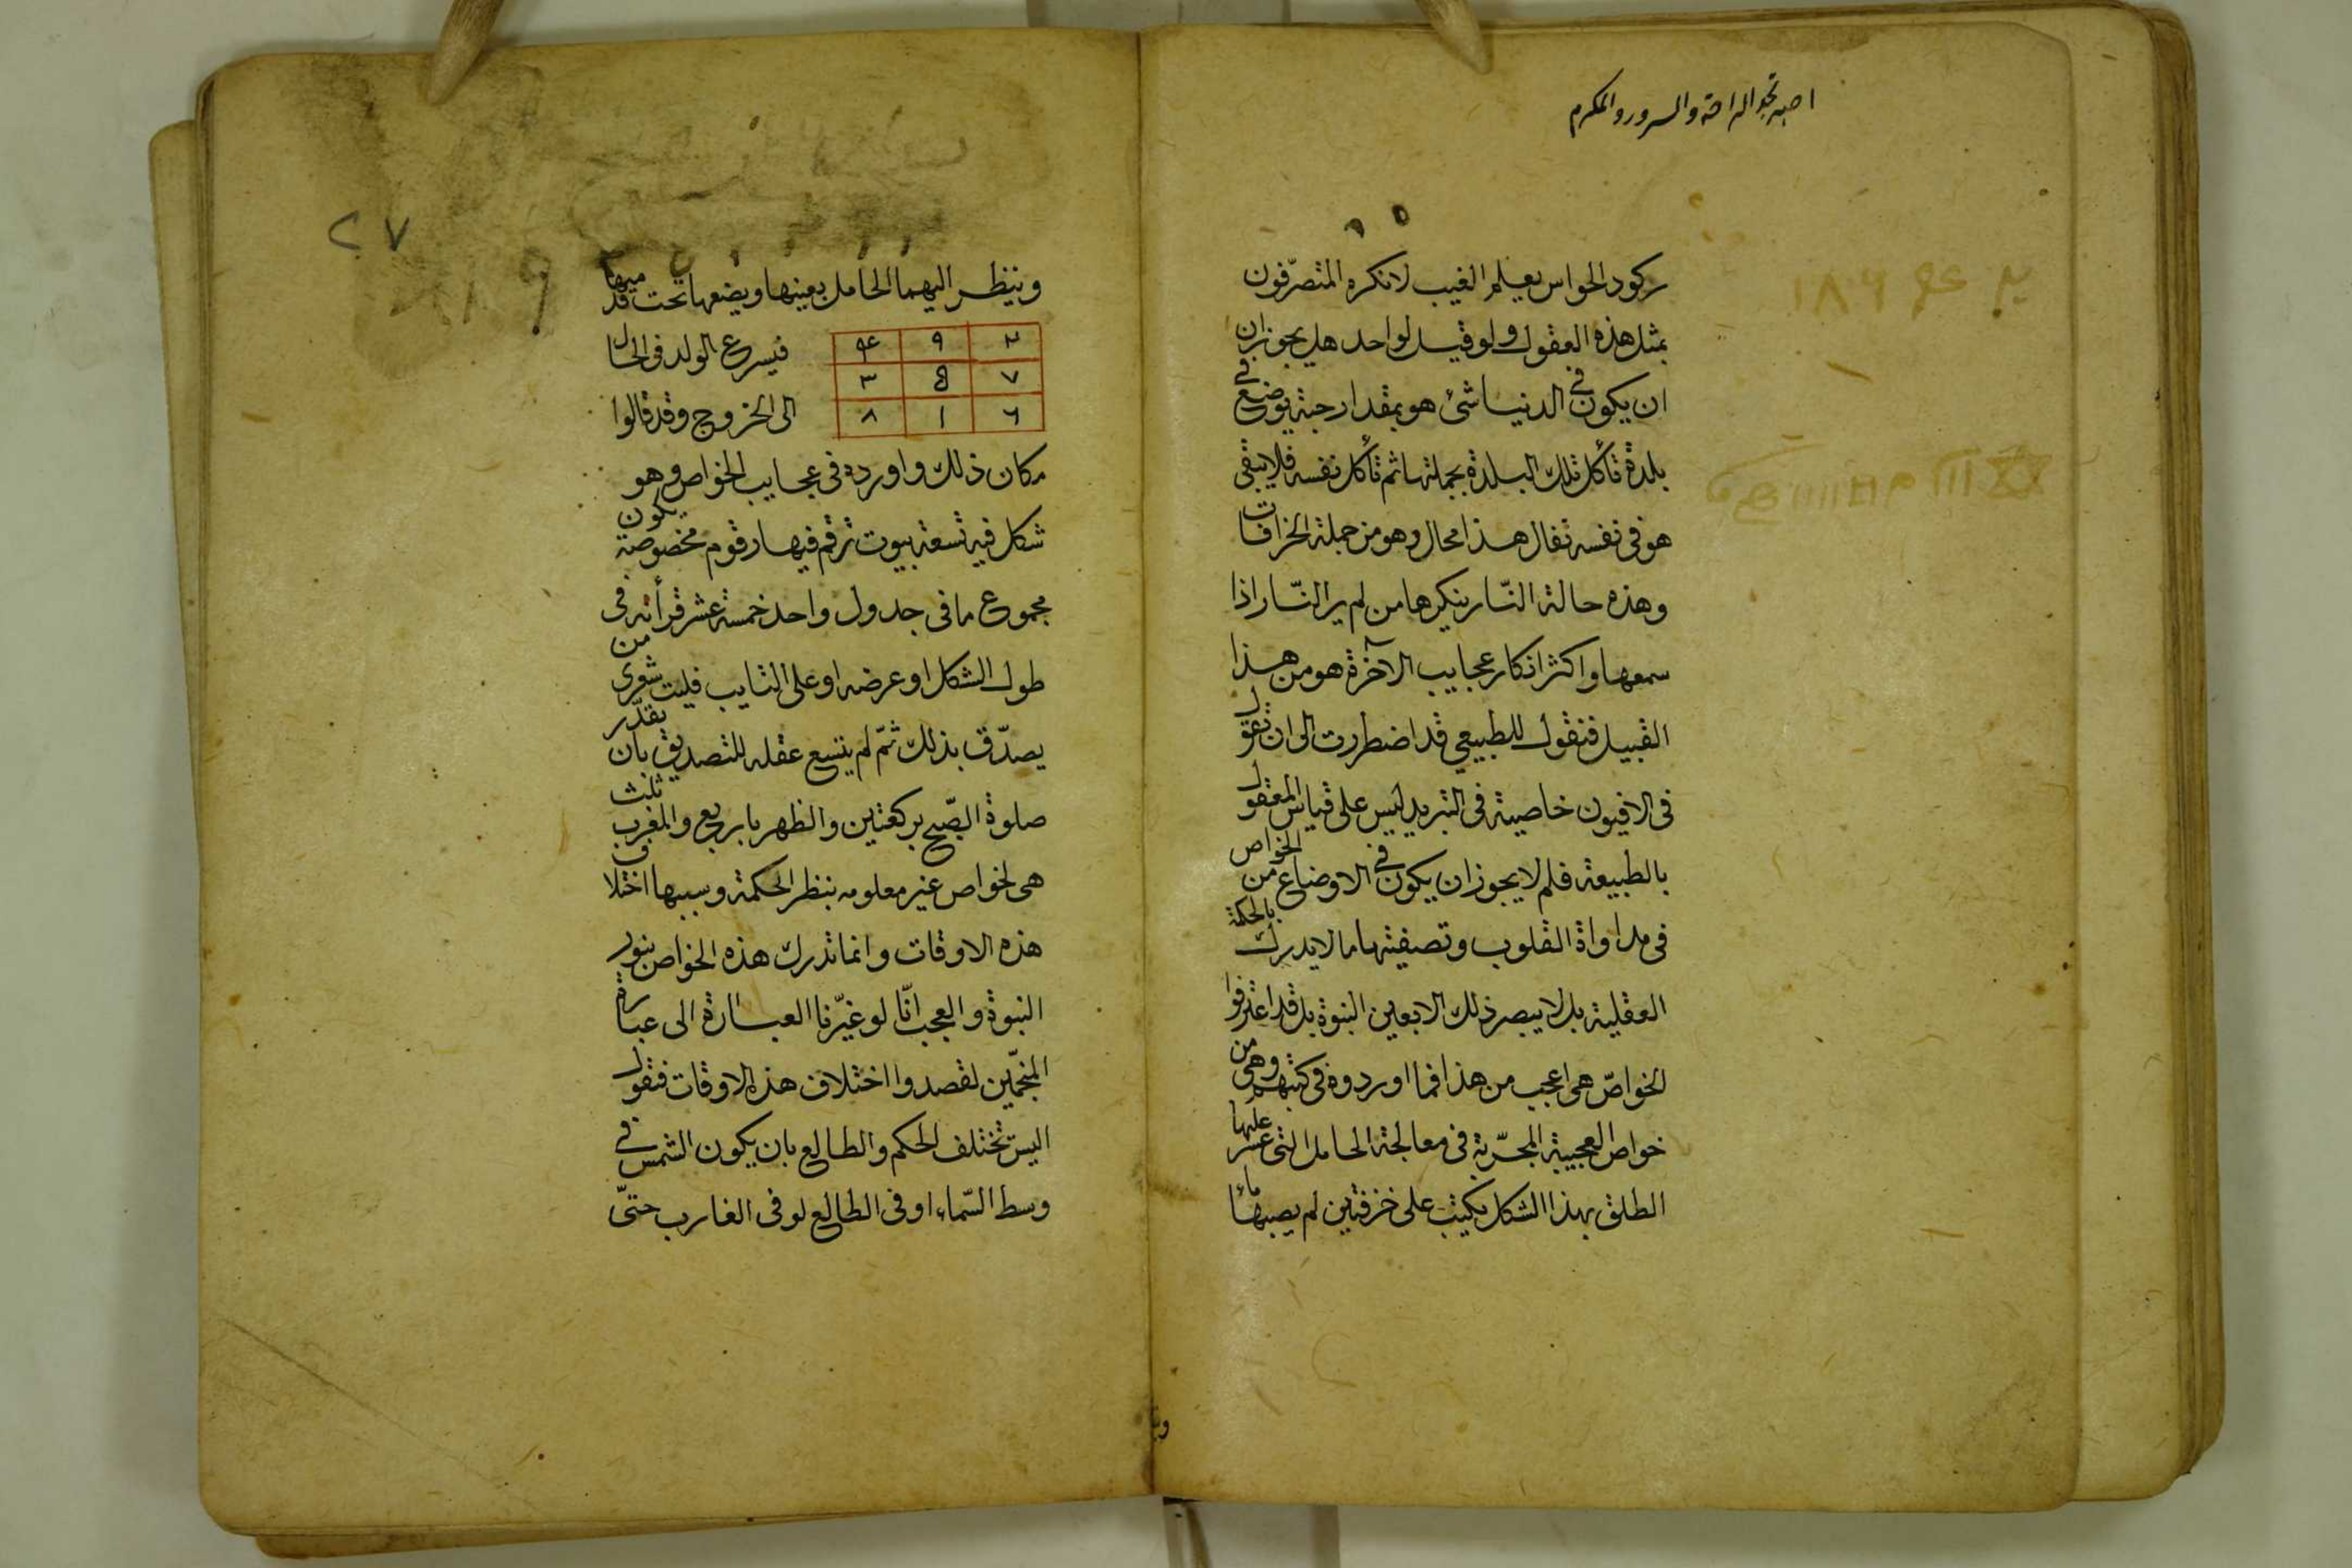 والسرور والمكرم
ركود الحواس يعلم الغيب لانكره المتصرّفون
بمثل هذه العقول ولو قيل لواحد هل يجوز ان
ان يكون في الدنيا شئ هو بمقدار حبة يوضع في
بلدة تأكل تلك البلدة بجملتها ثم تأكل نفسه فلا يبقى
هو فى نفسه تقال هذا محال وهو من جملة الخرافات
وهذه حالة النّار ينكرها من لم ير النّار اذا
سمعها واكثر انكار عجايب الآخرة هو من هذا
القبيل فنقول للطبيعي قد اضطررت الى ان تقول
فى الافيون خاصية فى التبريد ليس على قياس المعقول
بالطبيعة فلم لا يجوز ان يكون في الاوضاع من الخواص
فى مداواة القلوب وتصفيتها ما لا يدرك بالحكمة
العقلية بل لا يبصر ذلك الا بعين النبوة بل قد اعترفوا
لخواصّ هى اعجب من هذا فما اوردوه فى كتبهم وهى من
خواص العجيبة المجرّبة فى معالجة الحامل التى عسر عليها
الطلق بهذا الشكل يكتب على خزفتين لم يصبهما ماء
٢٧
وينظر اليهما الحامل بعينها ويضعها تحت قدميها
٢ ٩ ۴
فيسرع الولد فى الحال
٧ ۵ ٣
٦ ١ ٨
الى الخروج وقد قالوا
مكان ذلك واورده فى عجايب الخواص وهو
شكل فيه تسعة بيوت ترقم فيها رقوم مخصوصة يكون
مجموع ما فى جدول واحد خمسة عشر قرأته فى
طول الشكل او عرضه او على التايب فليت شعرى من
يصدّق بذلك ثمّ لم يتسع عقله للتصديق بان يقدّر
صلوة الصّبح بركعتين والظهر باربع والمغرب ثلث
هى لخواص غير معلومه بنظر الحكمة وسببها اختلاف
هذه الاوقات وانما تدرك هذه الخواص بنور
النبوة والعجب انّا لو غيّرنا العبارة الى عبارة
المنجمّين لقصدوا اختلاف هذه الاوقات فنقول
اليس تختلف الحكم والطالع بان يكون الشمس في
وسط السّماء او فى الطالع لو فى الغارب حتىّ